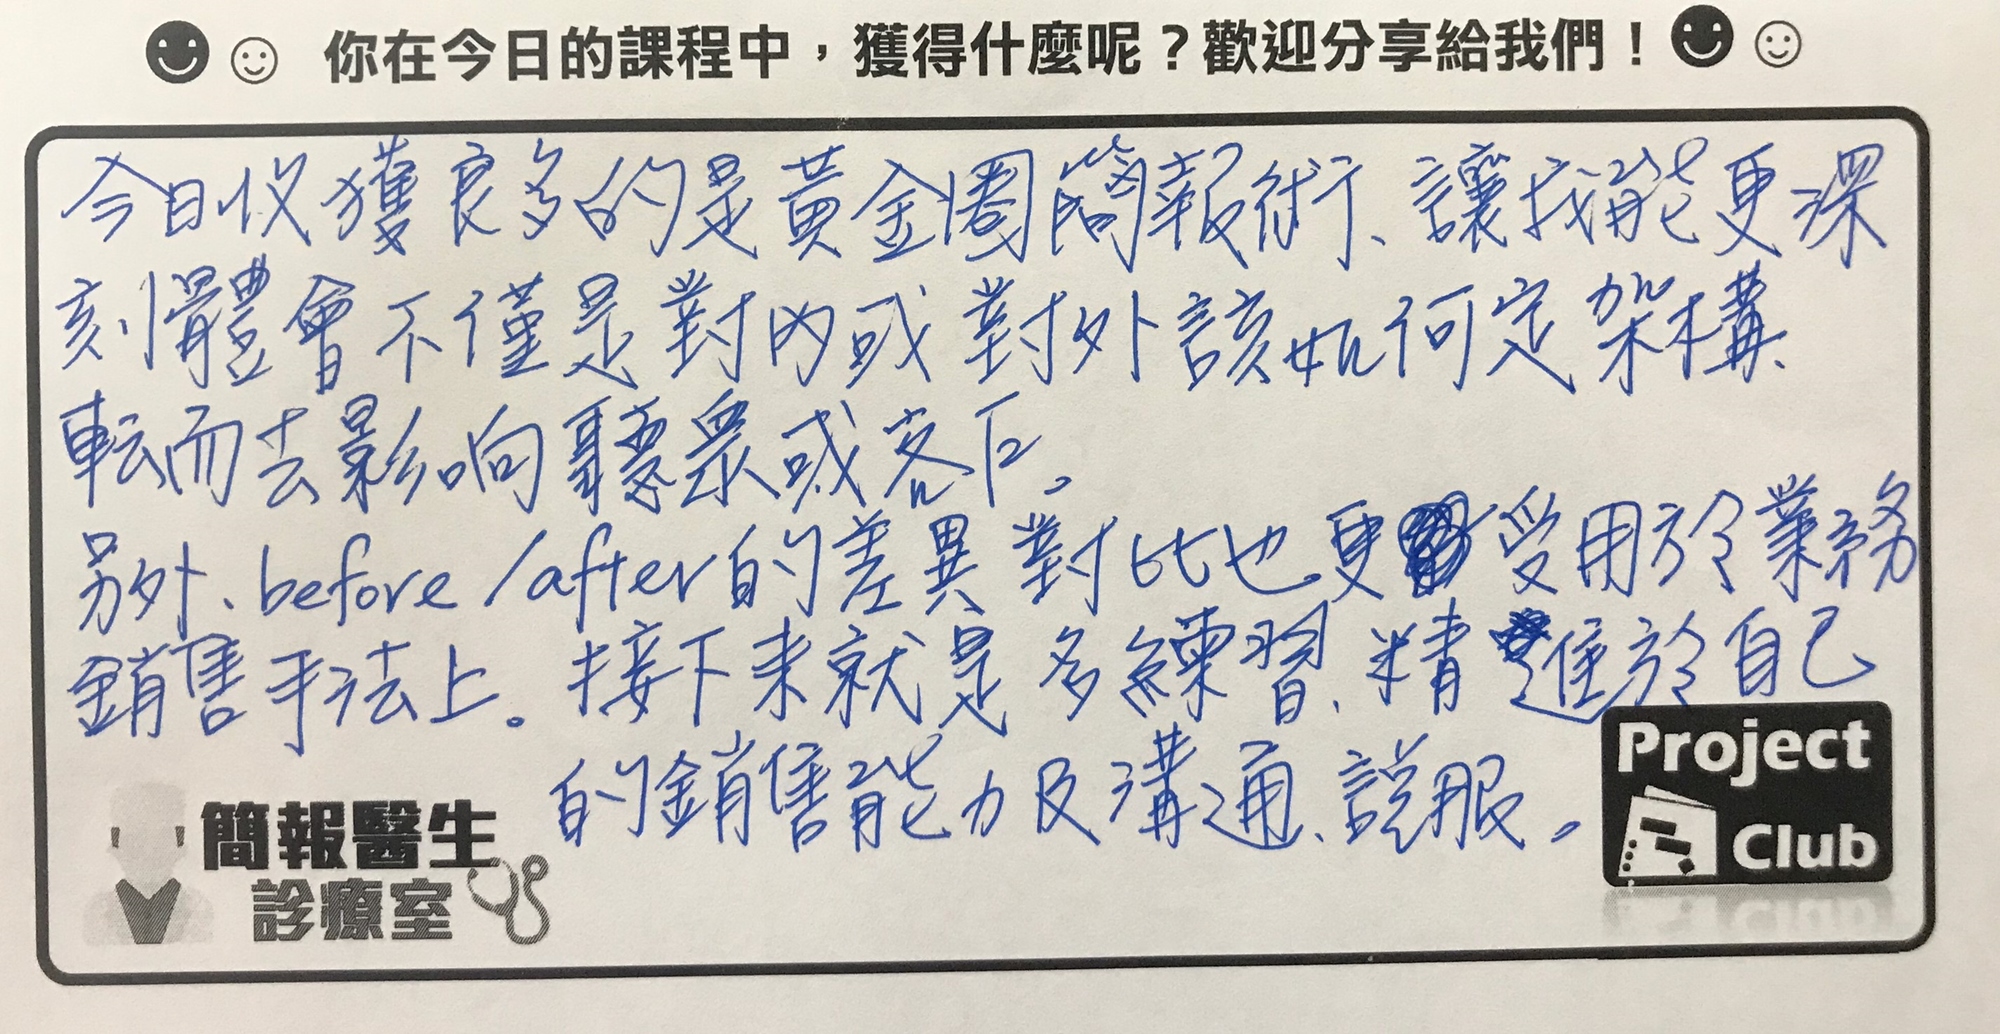 你在今日的課程中，獲得什麼呢？歡迎分享給我們！
今日收獲良多的是黃金圈簡報術、讓我能更深
刻體會不僅是對內或對外該如何定架構、
転而去影响聽眾或客戶。
另外、before/after的差異對比也更受用於業務
銷售手法上。接下來就是多練習、精進於自己
的銷售能力及溝通、説服。
簡報醫生
診療室
Project
Club